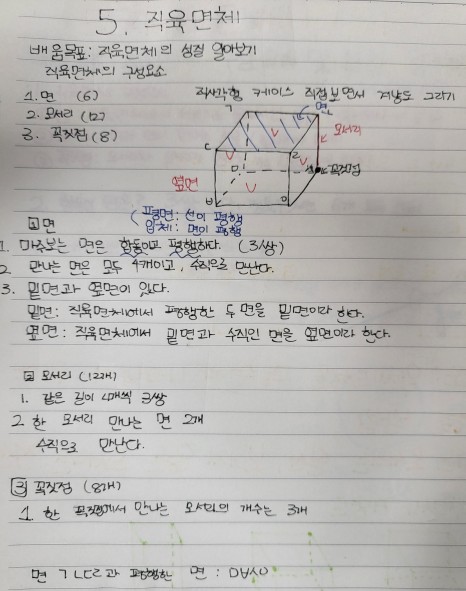 5. 직육면체
배움목표: 직육면체의 성질 알아보기
직육면체의 구성요소
1. 면 (6)
직사각형 케이스 직접 보면서 겨냥도 그리기
2. 모서리 (12)
3. 꼭짓점 (8)
ㄱ
면
모서리
ㄷ
ㄹ
ㅁ
꼭짓점
옆면
ㅂ
ㅇ
평면: 선이 평행
입체: 면이 평행
1 면
1. 마주보는 면은 합동이고 평행하다. (3쌍)
2 만나는 면은 모두 4개이고, 수직으로 만난다.
3. 밑면과 옆면이 있다.
밑면: 직육면체에서 평행한 두 면을 밑면이라 한다.
옆면: 직육면체에서 밑면과 수직인 면을 옆면이라 한다.
2 모서리 (12개)
1. 같은 길이 4개씩 3쌍
2 한 모서리 만나는 면 2개
수직으로 만난다.
3 꼭짓점 (8개)
1. 한 꼭짓점에서 만나는 모서리의 개수는 3개
면 ㄱㄴㄷㄹ과 평행한 면 : ㅁㅂㅅㅇ